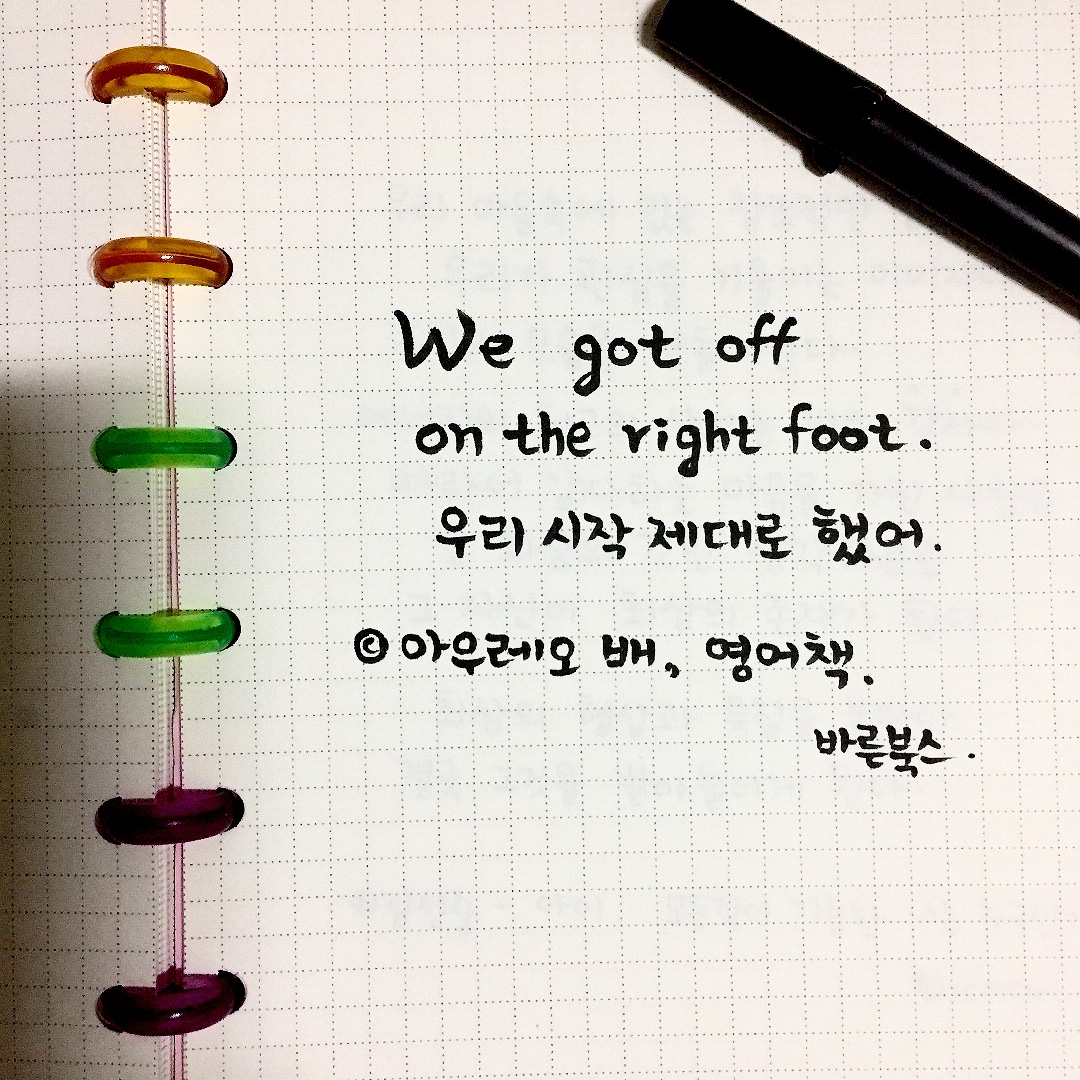 We got off
on the right foot.
우리 시작 제대로 했어.
© 아우레오 배, 영어책.
바른북스.